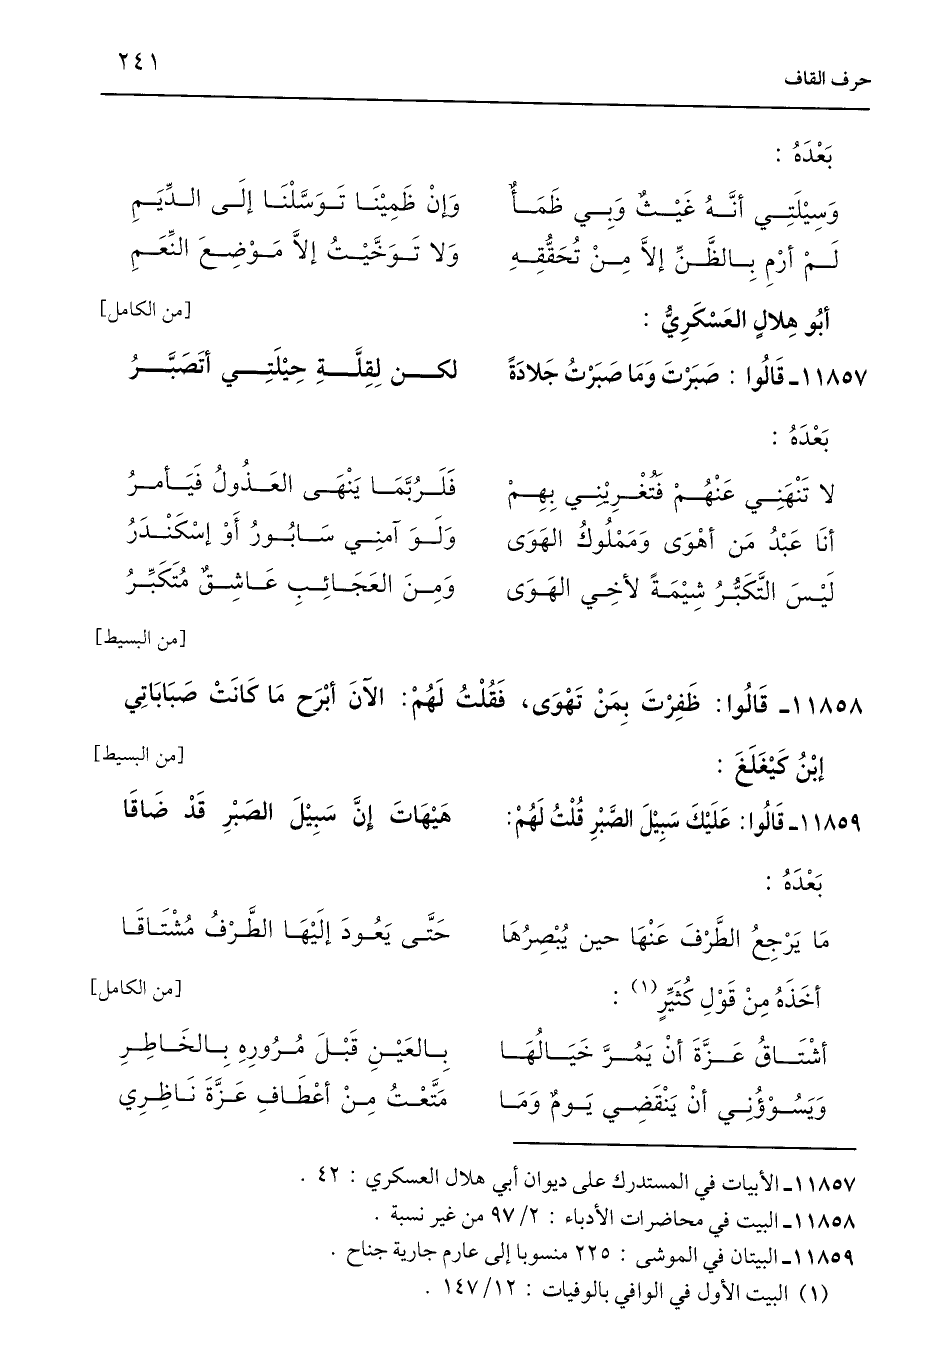 حرف القاف ٢٤١
بَعْدَهُ :
وَسِيْلَتِي أنَّهُ غَيْثٌ وَبِي ظَمَأٌ وَإنْ ظَمِيْنَا تَوَسَّلْنَا إلَى الدِّيَمِ
لَمْ أرْمِ بِالظَّنِّ إلاَّ مِنْ تُحَقَّقِهِ وَلا تَوَخَّيْتُ إلاَّ مَوْضِعَ النِّعَمِ
أبُو هِلالٍ العَسْكَرِيُّ : [من الكامل]
١١٨٥٧ـ قَالُوا : صَبَرْتَ وَمَا صَبَرْتُ جَلادَةً لكن لِقِلَّةِ حِيْلَتِي أتَصَبَّرُ
بَعْدَهُ :
لا تَنْهَنِي عَنْهُمْ فَتُغْرِيْنِي بِهِمْ فَلَرُبَّمَا يَنْهَى العَذُولُ فَيَأمرُ
أنَا عَبْدُ مَن أهْوَى وَمَمْلُوكُ الهَوَى وَلَوَ آمنِي سَابُورُ أوْ إسْكَنْدَرُ
لَيْسَ التَّكَبُّرُ شِيْمَةً لأخِي الهَوَى وَمِنَ العَجَائِبِ عَاشِقٌ مُتَكَبِّرُ
[من البسيط]
١١٨٥٨ـ قَالُوا: ظَفِرْتَ بِمَنْ تَهْوَى، فَقُلْتُ لَهُمْ: الآنَ أبْرَح مَا كَانَتْ صَبَابَاتِي
إبْنُ كَيْغَلَغَ : [من البسيط]
١١٨٥٩ـ قَالُوا: عَلَيْكَ سَبِيْلَ الصَّبْرِ قُلْتُ لَهُمْ: هَيْهَاتَ إنَّ سَبِيْلَ الصَبْرِ قَدْ ضَاقَا
بَعْدَهُ :
مَا يَرْجِعُ الطَّرْفَ عَنْهَا حين يُبْصِرُهَا حَتَّى يَعُودَ إلَيْهَا الطَّرْفُ مُشْتَاقَا
أخَذَهُ مِنْ قَوْلِ كُثَيِّرٍ(١) : [من الكامل]
أشْتَاقُ عَزَّةَ أنْ يَمُرَّ خَيَالُهَا بِالعَيْنِ قَبْلَ مُرُورِهِ بِالخَاطِرِ
وَيَسُوْؤُنِي أنْ يَنْقَضِي يَومٌ وَمَا مَتَّعْتُ مِنْ أعْطَافِ عَزَّةَ نَاظِرِي
١١٨٥٧ـ الأبيات في المستدرك على ديوان أبي هلال العسكري : ٤٢ .
١١٨٥٨ـ البيت في محاضرات الأدباء : ٩٧/٢ من غير نسبة .
١١٨٥٩ـ البيتان في الموشى : ٢٢٥ منسوبا إلى عارم جارية جناح .
(١) البيت الأول في الوافي بالوفيات : ١٤٧/١٢ .